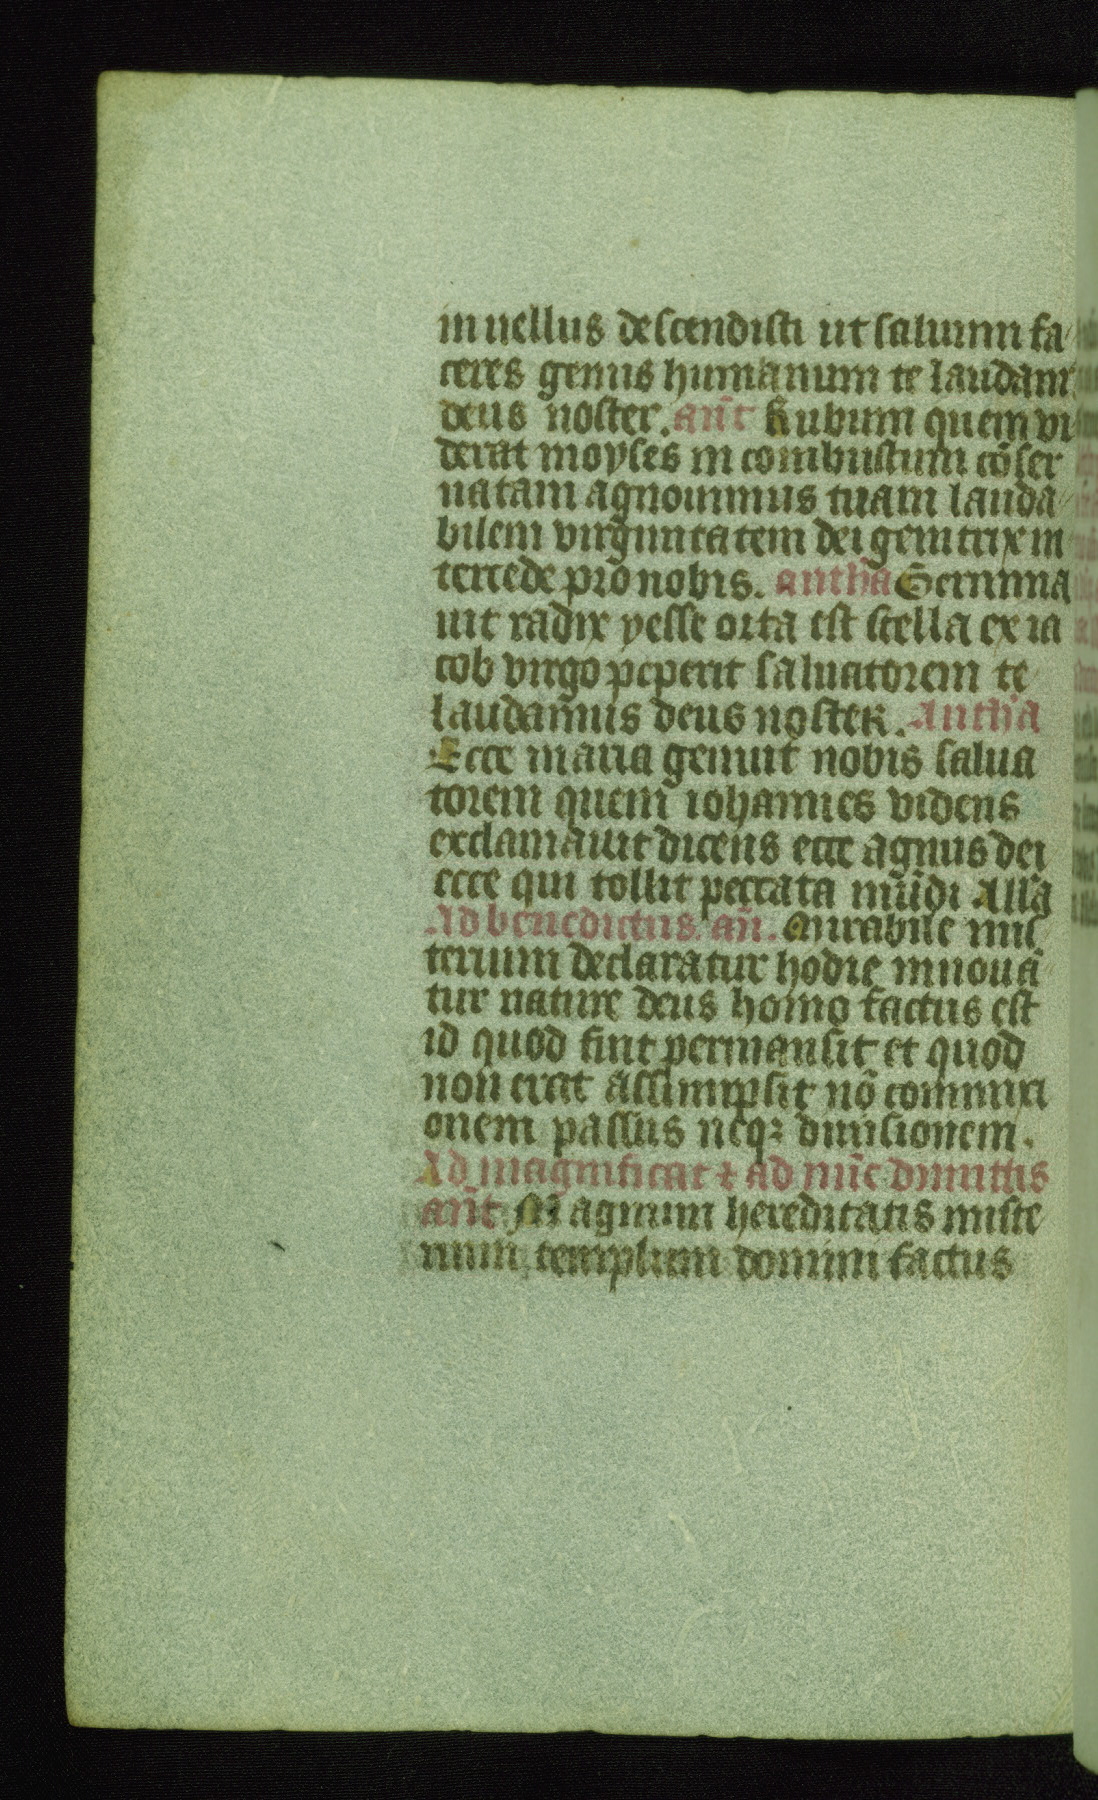 in uellus descendisti ut saluum fa
ceres genus humanum te laudam̄
deus noster. an̄t Rubum quem vi
derat moyses in combustum cōser
uatam agnouimus tuam lauda
bilem virginitatem dei genitrix in
tercede pro nobis. anth̄a Germina
uit radix yesse orta est stella ex ia
cob virgo peperit saluatorem te
laudamus deus noster. Anth̄a
Ecce maria genuit nobis salua
torem quem iohannes videns
exclamauit dicens ecce agnus dei
ecce qui tollit peccata mūdi All'a
Ad benedictus. an̄. Mirabile mis
terium declaratur hodie innouā
tur nature deus homo factus est
id quod fuit permansit et quod
non erat assumpsit nō commixti
onem passus neqꝫ diuisionem.
Ad magnificat ⁊ ad nūc dimittis
an̄t Magnum hereditatis miste
rium templum domini factus